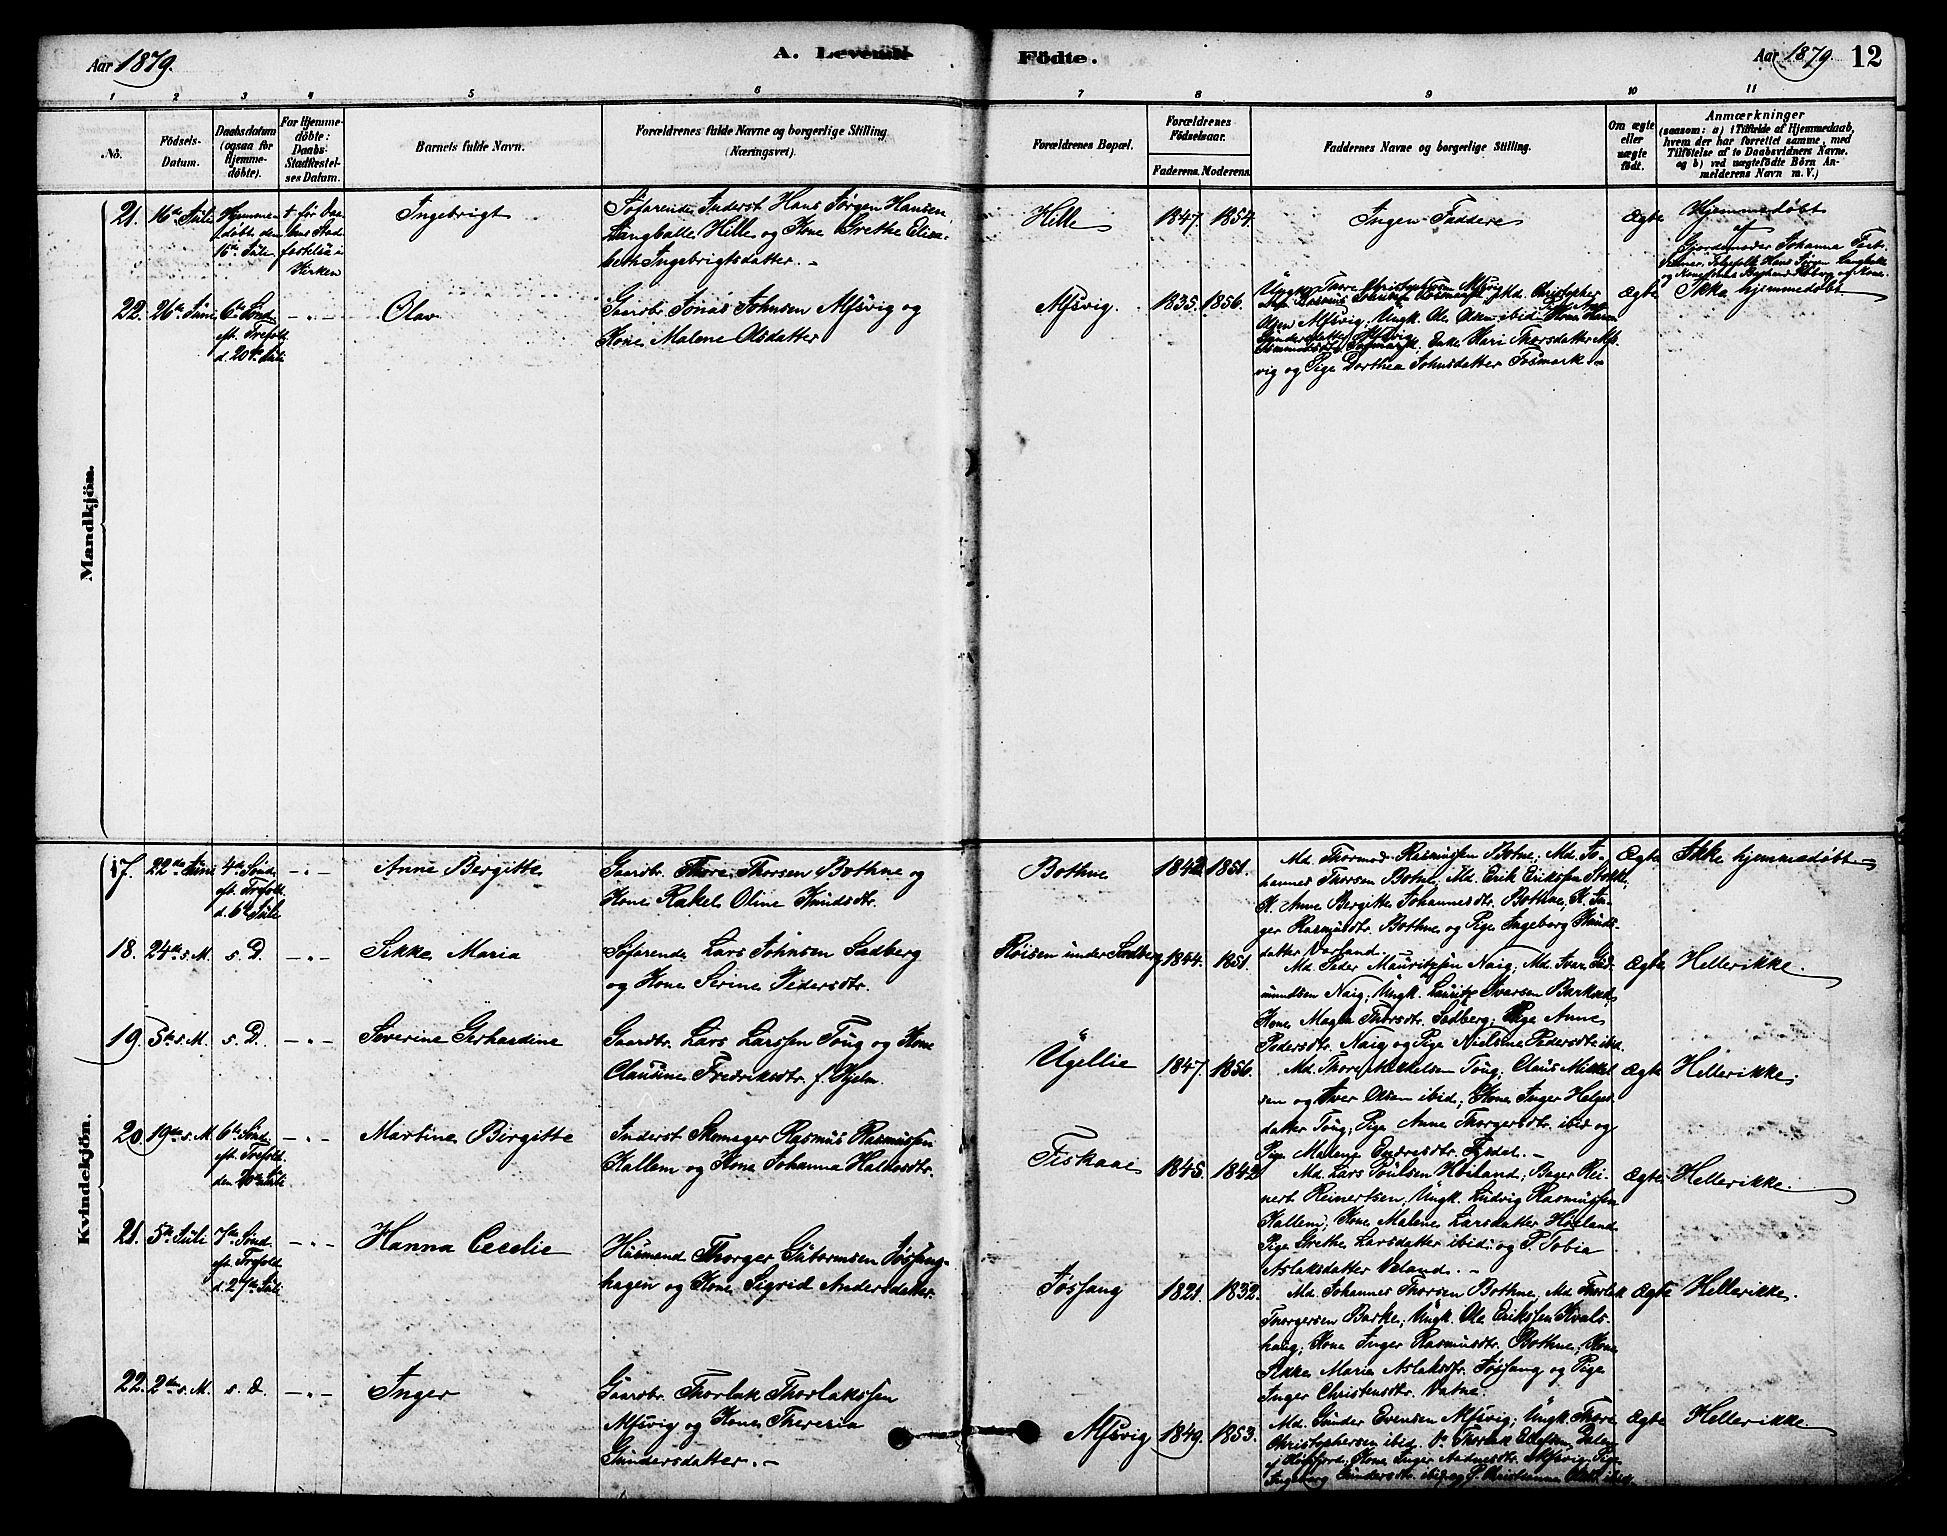 Aar 1879.
A. Levende
Födte.
Aar 1879.
12
1 2 3 4 5 6 7 8 9 10 11
No.
Födsels-
Datum.
Daabsdatum
(ogsaa for
Hjemme-
döbte).
For Hjemme-
döbte:
Daabs-
Stadfæstel-
ses Datum.
Barnets fulde Navn.
Forældrenes fulde Navne og borgerlige Stilling
(Næringsvei).
Forældrenes Bopæl.
Forældrenes
Födselsaar.
Faderens. Moderens.
Faddernes Navne og borgerlige Stilling.
Om ægte
eller
uægte
födt.
Anmærkninger
(saasom: a) i Tilfælde af Hjemmedaab,
hvem der har forrettet samme, med
Tilföielse af to Daabsvidners Navne.
og b) ved uægtefödte Börn An-
melderens Navn m. V.)
Mandkjön.
21.
16de Juli
Hjemme-
døbt den
16de Juli
† før Daa-
bens Stad-
fæstelse i
Kirken
Ingebrigt
Søfarende Inderst Hans Jørgen Hansen
Langballe Hille og Kone Grethe Elisa-
beth Ingebrigtsdatter. –
Hille
1847.
1854.
Ingen Faddere
Ægte
Hjemmedøbt
af
Gjordemoder Johanna
22.
26de Juni
6te Sønd.
eft. Trefold.
d. 20de Juli
– " –
Olav
Gaardbr. Jonas Johnsen Alfsvig og
Kone Malene Olsdatter
Alfsvig.
1835.
1856.
Ungk. Thore Christophersen Alfsvig
Md. Christopher
Olsen Alfsvig; Ungk. Ole Olsen ibid;
Enke Kari Thorsdatter Alfs-
vig og Pige Dorthea Johnsdatter Fosmark. –
Ægte
Ikke hjemmedøbt
Kvindekjön.
17.
22de Juni
4de Sønd.
eft. Trefold.
d. 6te Juli
– " –
Anne Bergitte
Gaardbr. Thore Thorsen Bothne og
Kone Rakel Oline Knudsdtr.
Bothne
1842
1851.
Md. Thormod Rasmussen Botne; Md. Jo-
hannes Thorsen Botne; Md. Erik Eriksen
K. Anne Bergitte Johannesdtr. Bothne; K. In-
ger Rasmusdtr. Bothne og Pige Ingeborg Knuds-
datter Vorland.
Ægte
Ikke hjemmedøbt
18.
24de s. M.
s. D.
– " –
Sikke Maria
Søfarende Lars Johnsen Sadberg
og Kone Serine Pedersdtr.
Røisen under Sadberg
1844.
1851.
Md. Peder Mauritzsen Naig; Md. Iver Gud-
mundsen Naig; Ungk. Lauritz Ivarsen
Kone Magla Thorsdtr. Sadberg; Pige Anne
Pedersdtr. Naig og Pige Nielsine Pedersdtr. ibid.
Ægte
Hellerikke.
19.
5te s. M.
s. D.
– " –
Severine Gerhardine
Gaardbr. Lars Larssen Toug og Kone
Clausine Fredriksdtr. f. Hjelm.
Ugellie
1847.
1856.
Md. Thore Mikkelsen Toug; Claus Mikkel-
sen og Iver Olsen ibid; Kone Inger Helges-
datter Toug; Pige Anne Thorgersdtr. ibid og
Pige Malene Endresdtr. –
Ægte
Hellerikke.
20.
19de s. M.
6te Sønd.
eft. Trefold.
den 20de Juli
– " –
Martine Birgitte
Inderst Skomager Rasmus Rasmussen
Kallem og Kone Johanna
Fiskaae
1845.
1842
Md. Lars Poulsen Høiland; Bager Rei-
nert Reinertsen; Ungk. Ludvig Rasmussen
Kallem; Kone Malene Larsdatter Høiland
Pige Grethe Larsdatter ibid: og P. Tobia
Aslaksdatter Valand. –
Ægte
Hellerikke.
21.
5te Juli
7de Sønd.
eft. Trefold.
d. 27de Juli
– " –
Hanna Cecelie
Husmand Thorger Guttormsen Jøsfang-
hagen og Kone Sigrid Andersdatter.
Jøsfang
1821.
1832.
Md. Johannes Thorsen Bothne; Md. Thorlak
Thorgersen Barke; Ungk. Ole Eriksen Kvals-
haug; Kone Inger Rasmusdtr. Bothne; Kone
Sikke Maria Aslaksdtr. Jøsfang og Pige
Inger Christensdtr. Vatne.
Ægte
Hellerikke.
22.
2den s. M.
s. D.
– " –
Inger
Gaardbr. Thorlak Thorlakssen
Alfsvig og Kone Theresia
Gundersdatter. –
Alfsvig
1849.
1853.
Md. Gunder Evensen Alfsvig; Ungk. Thore
Christophersen ibid.
Kone Inger Aadnesdtr. Alfsvig; Pige
Ingeborg Gundersdtr. ibid og P. Christianna
Ægte
Hellerikke.